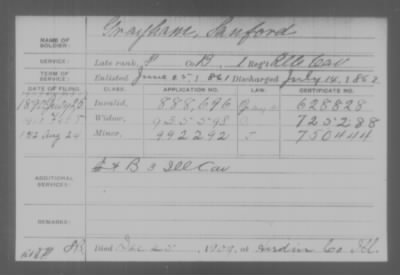 NAME OF SOLDIER: Grayham, Sanford
SERVICE: Late rank, Co. B, 1 Reg't Ills Cav
TERM OF SERVICE: Enlisted June 25, 1861 Discharged July 14, 1862
DATE OF FILING. CLASS. APPLICATION NO. LAW. CERTIFICATE NO.
1890 July 25 Invalid, 888,696 628828
Widow, 935598 725288
Aug 24 Minor, 992292 750444
ADDITIONAL SERVICE: & B 3 Ill Cav
REMARKS:
Died Dec 25, 1909, at Hardin Co Ill.